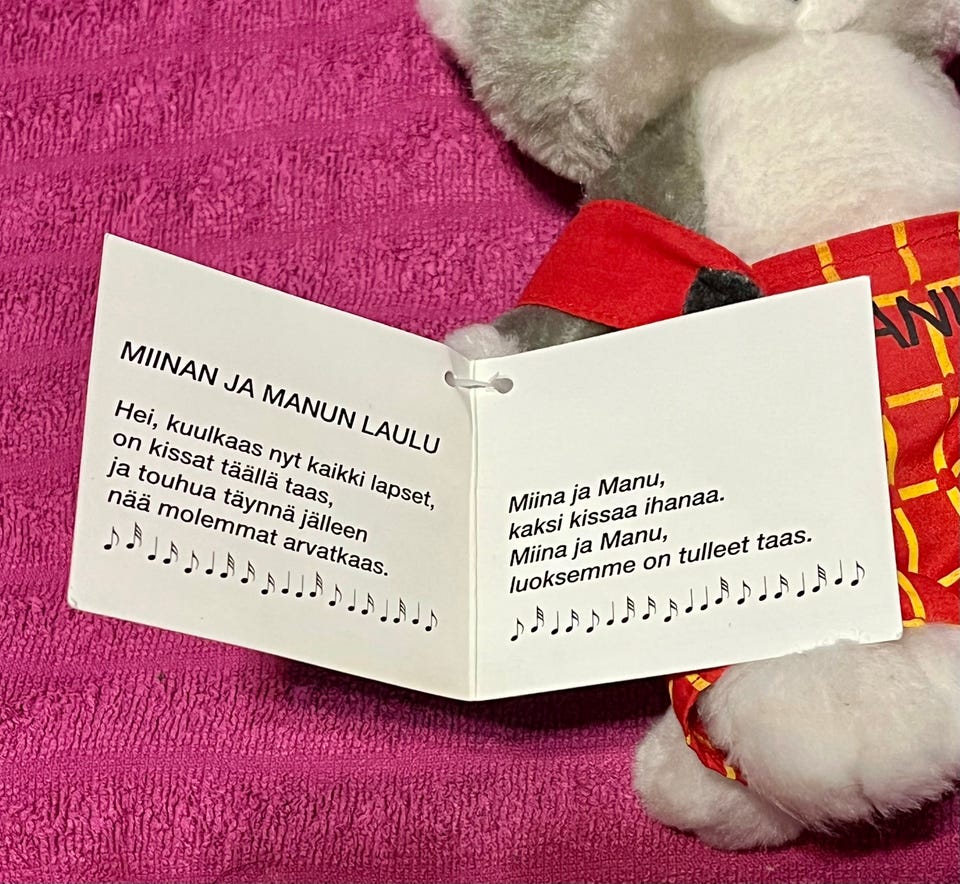 MIINAN JA MANUN LAULU
Hei, kuulkaas nyt kaikki lapset,
on kissat täällä taas,
ja touhua täynnä jälleen
nää molemmat arvatkaas.
Miina ja Manu,
kaksi kissaa ihanaa.
Miina ja Manu,
luoksemme on tulleet taas.